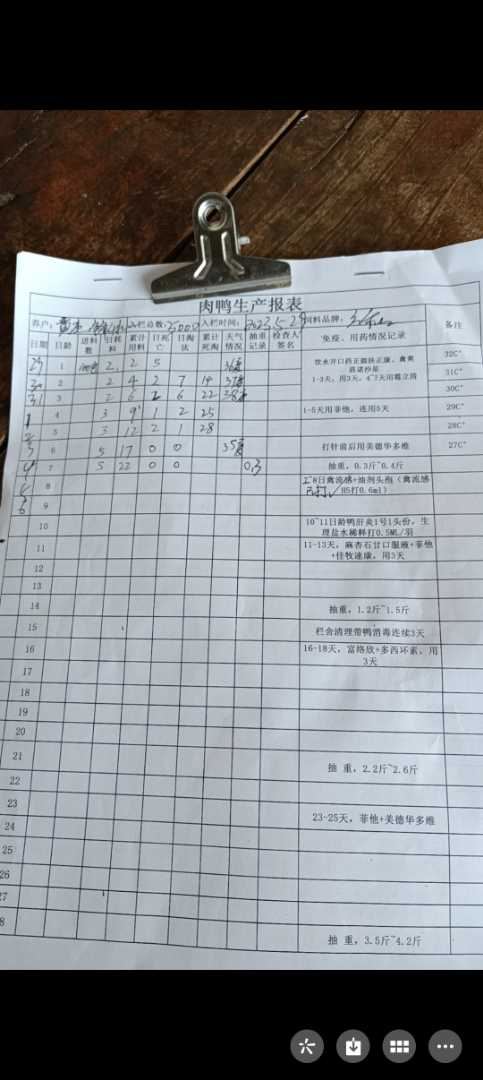 肉鸭生产报表
客户: 入栏总数: 5000 入栏时间: 2023.5-29 饲料品牌:
日期 日龄 进料数 日耗料 累计用料 日死亡 日淘汰 累计死淘 天气情况 抽重记录 检查人签名 免疫、用药情况记录 备注
29 1 2 2 5 36度 32C°
饮水开口药正颗扶正康、禽爽
恩诺沙星
1-3天,用3天,4~7天用霉立清
30 2 2 4 2 7 14 37度 31C°
31 3 2 6 2 6 22 38度 30C°
1 4 3 9 1 2 25 1-5天用菲他,连用5天 29C°
2 5 3 12 2 1 28 28C°
3 6 5 17 0 0 35度 打针前后用美德华多维 27C°
4 7 5 22 0 0 0.3 抽重,0.3斤~0.4斤
5 8 日禽流感+油剂头孢(禽流感
已打 H5打0.6ml)
6 9
10 10~11日龄鸭肝炎1号1头份,生
理盐水稀释打0.5ML/羽
11 11-13天,麻杏石甘口服液+菲他
+佳牧速康,用3天
12
13
14 抽重,1.2斤~1.5斤
15 栏舍清理带鸭消毒连续3天
16 16-18天,富络欣+多西环素,用
3天
17
18
19
20
21 抽 重,2.2斤~2.6斤
22
23 23-25天,菲他+美德华多维
24
25
26
27
28 抽 重,3.5斤~4.2斤